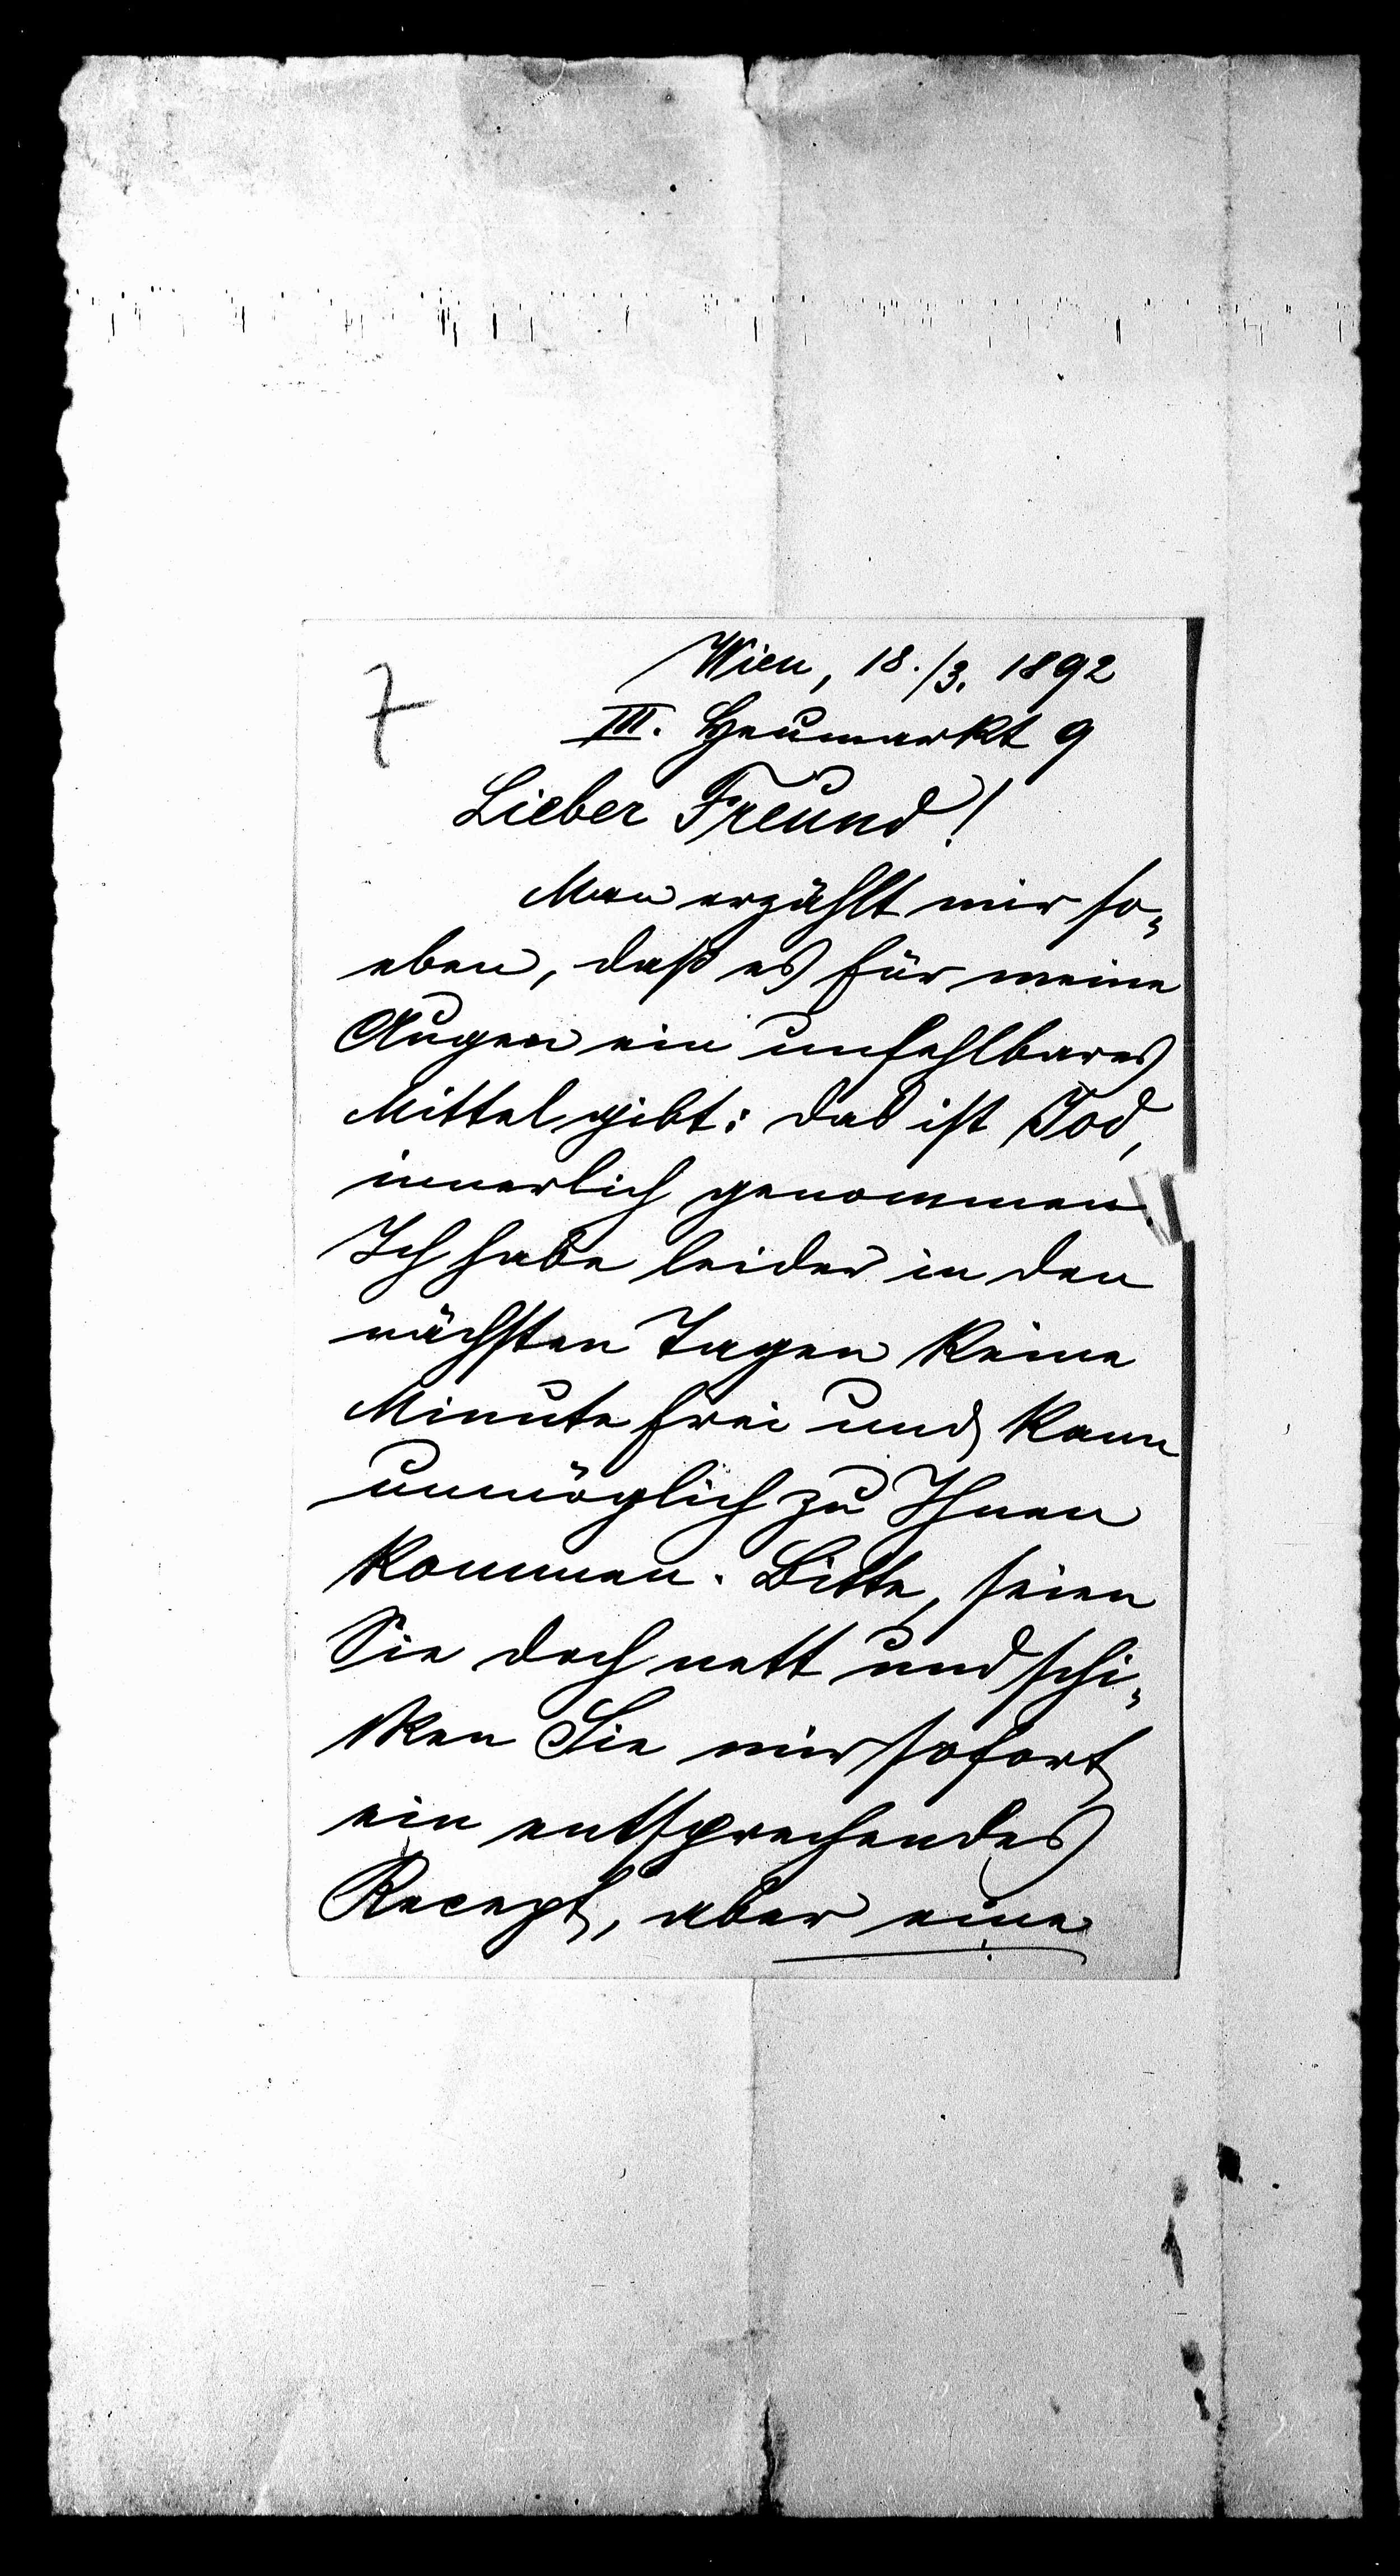 7
Wien, 18./3. 1892
III. Heumarkt 9
Lieber Freund!
Man erzählt mir so⸗
eben, daß es für meine
Augen ein unfehlbares
Mittel gibt: das ist Jod,
innerlich genommen.
Ich habe leider in den
nächsten Tagen keine
Minute frei und kann
unmöglich zu Ihnen
kommen. Bitte, seien
Sie doch nett und schi⸗
ken Sie mir sofort
ein entsprechendes
Recept, aber eine